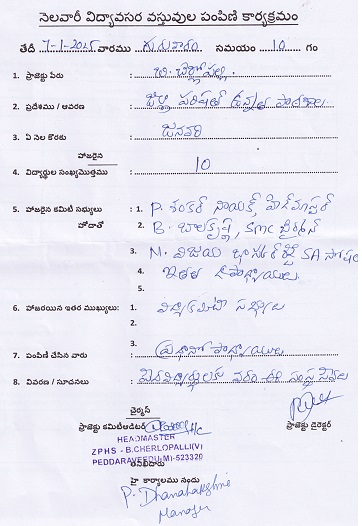 నెలవారీ విద్యావసర వస్తువుల పంపిణి కార్యక్రమం
తేదీ వారము గురువారం సమయం 10 గం
1. ప్రాజెక్టు పేరు బి.చెర్లోపల్లి
2. ప్రదేశము / ఆవరణ జిల్లా పరిషత్ ఉన్నత పాఠశాల
3. ఏ నెల కొరకు జనవరి
హాజరైన
4. విద్యార్థుల సంఖ్యమొత్తము 10
5. హాజరైన కమిటి సభ్యులు : 1. P. శంకర్ నాయక్, హెడ్మాస్టర్
హోదాతో 2. B. బాలకృష్ణ, SMC చైర్మన్
3. N. విజయ భాస్కర్ రెడ్డి SA సోషల్
4. ఇతర ఉపాధ్యాయులు
5.
6. హాజరయిన ఇతర ముఖ్యులు: 1. విద్యాకమిటీ సభ్యులు
2.
3.
7. పంపిణి చేసిన వారు : ప్రధానోపాధ్యాయులు
8. వివరణ / సూచనలు :
చైర్మన్
ప్రాజెక్టు కమిటీఆడిటర్ ప్రాజెక్టు డైరెక్టర్
HEADMASTER
ZPHS - B.CHERLOPALLI(V)
PEDDARAVEEDU(M)-523320
తనిఖీదారు
హై కార్యాలము నందు
P. Dhanalakshmi
Manager